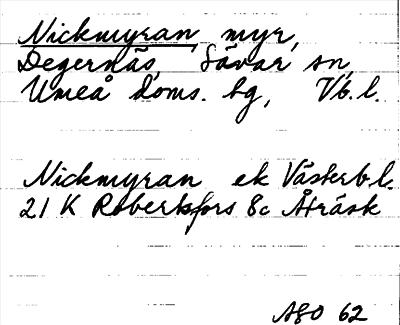 Nickmyran myr,
Degernäs, Sävar sn,
Umeå doms. bg, Vb.l.
Nickmyran ek Västerb.l.
21 K Robertsfors 8c Åträsk
ASO 62